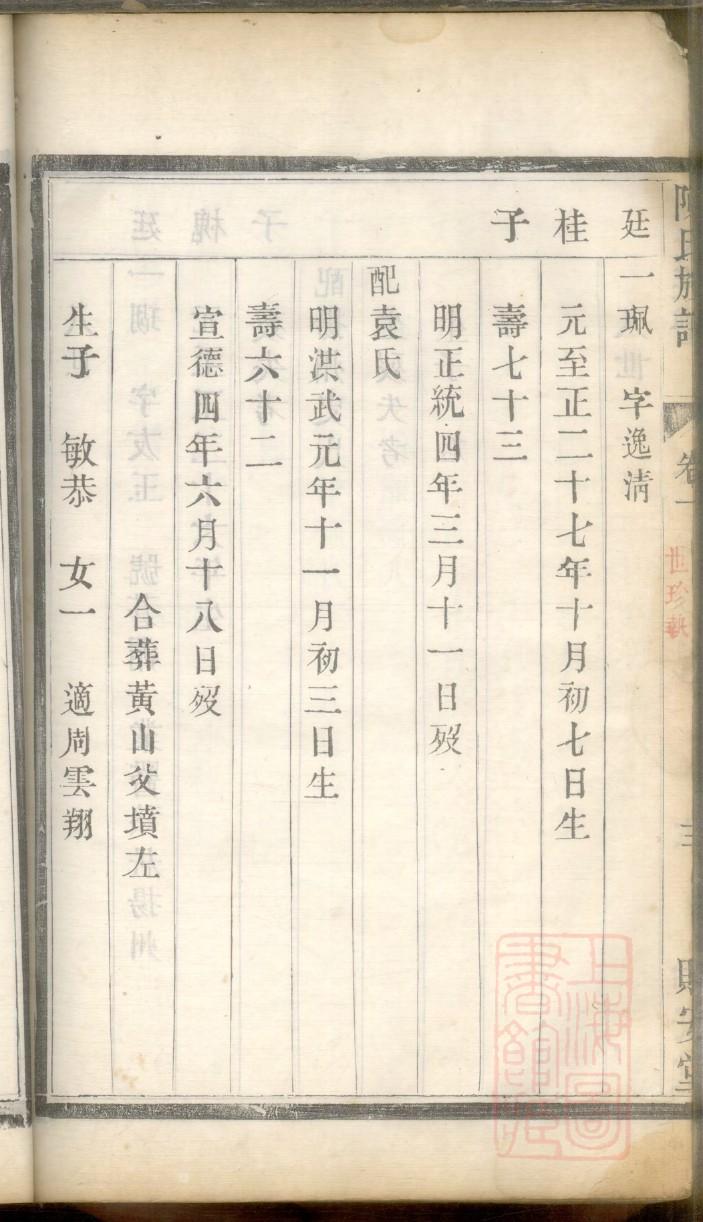 陳氏族譜
卷一
世珍執
三
貽安堂
廷一珮 字逸清
桂 元至正二十七年十月初七日生
子 壽七十三
明正統四年三月十一日歿
配袁氏
明洪武元年十一月初三日生
壽六十二
宣德四年六月十八日歿
合葬黃山父墳左
生子 敏恭 女一 適周雲翔
上海圖
書館藏